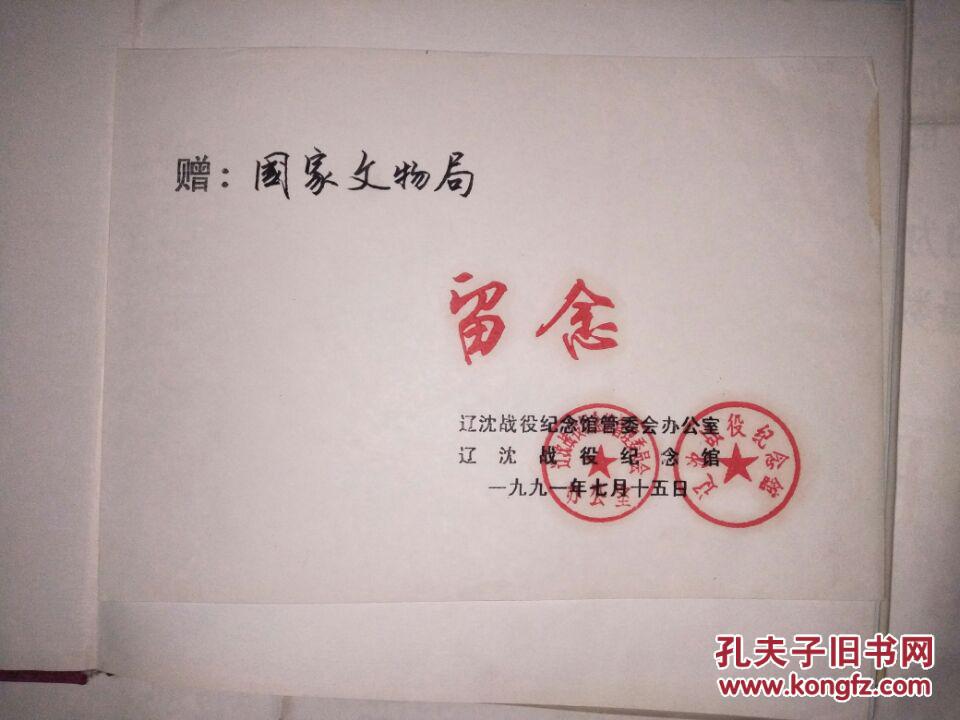 赠：國家文物局
留念
辽沈战役纪念馆管委会办公室
辽沈战役纪念馆
一九九一年七月十五日
办公室
辽沈战役纪念馆
孔夫子旧书网
www.kongfz.com